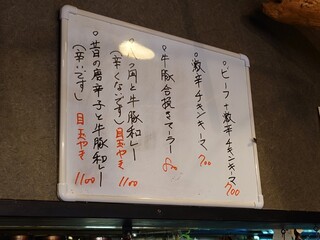 。ビーフ+激辛チキンキーマ
700
。激辛チキンキーマ 700
。牛豚合挽きマーラー
と牛豚和レー
(辛くないです) 目玉やき 1100
。昔の唐辛子と牛豚和レー
(辛いです) 目玉やき 1100